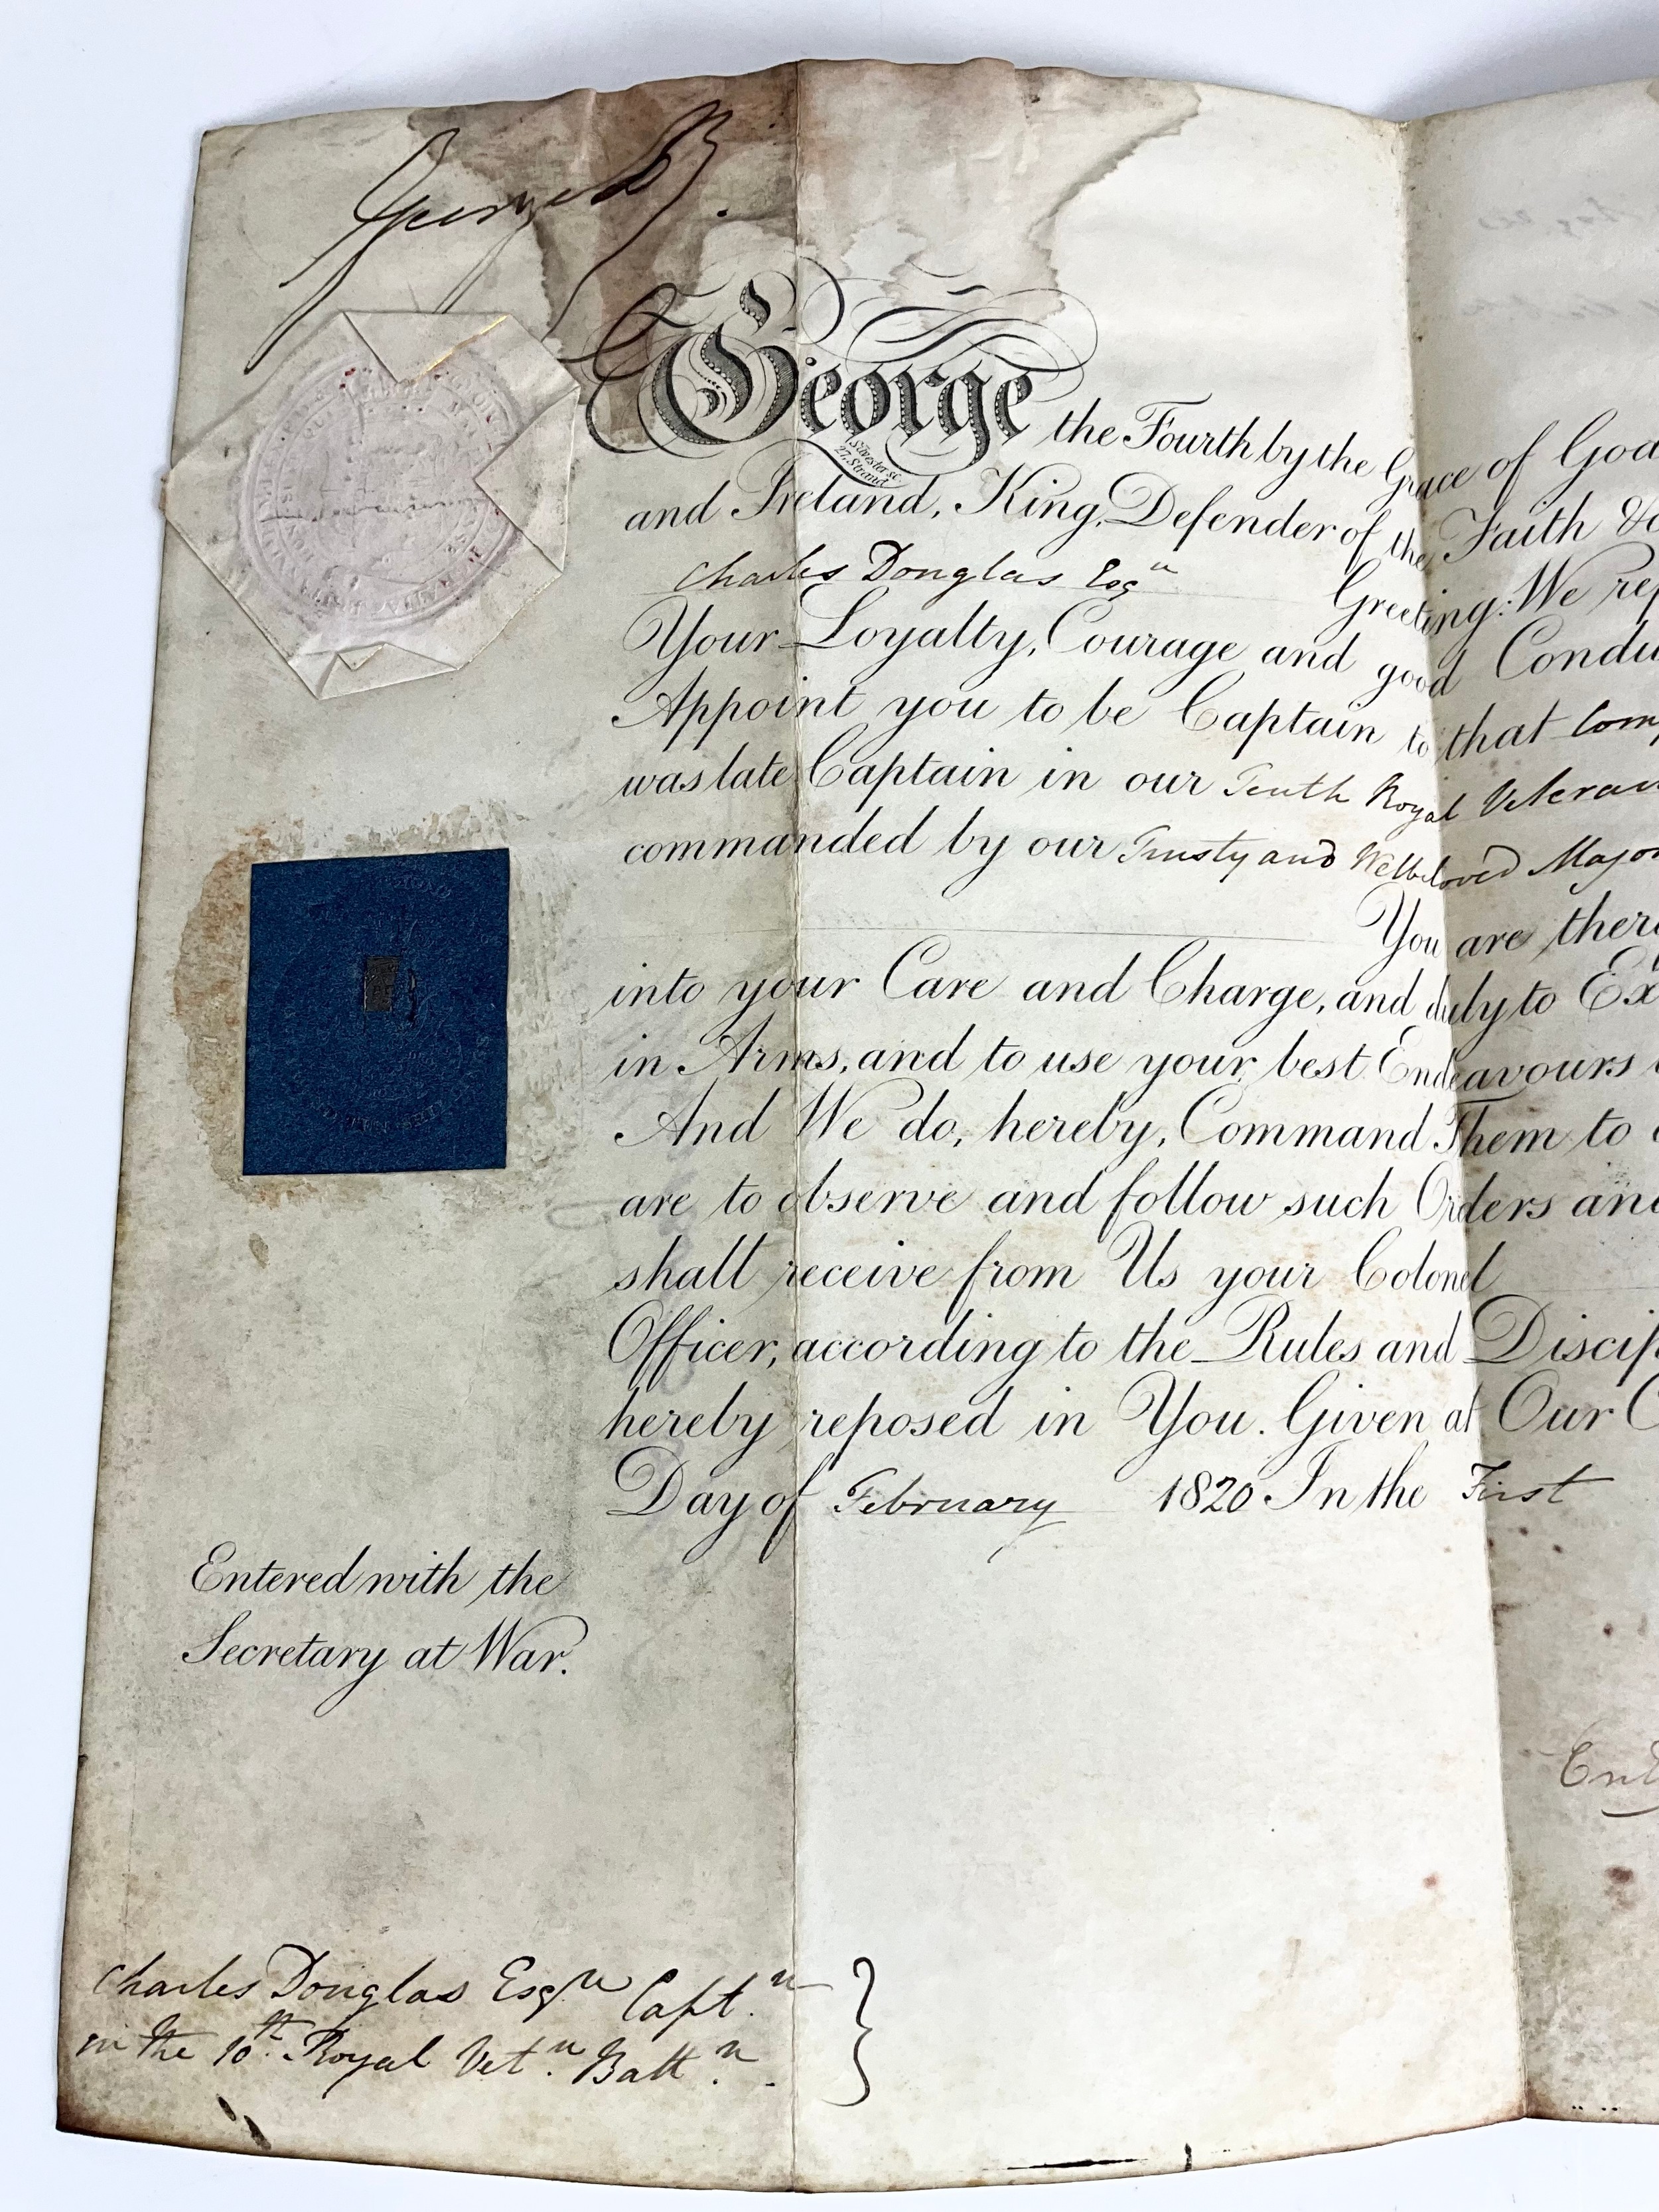 George R.
George the Fourth by the Grace of God
Silvester sc
27, Strand
and Ireland, King, Defender of the Faith &c
Charles Douglas Esqr Greeting: We rep
Your Loyalty, Courage and good Condu
Appoint you to be Captain to that Comp
was late Captain in our Tenth Royal Veteran
commanded by our Trusty and Wellbeloved Major
You are there
into your Care and Charge, and duly to Ex
in Arms, and to use your best Endeavours
And We do, hereby, Command Them to
are to observe and follow such Orders and
shall receive from Us your Colonel
Officer, according to the Rules and Discip
hereby reposed in You. Given at Our C
Day of February 1820 In the First
Entered with the
Secretary at War.
Charles Douglas Esqr Capt.n
in the 10th Royal Vetn. Battn.